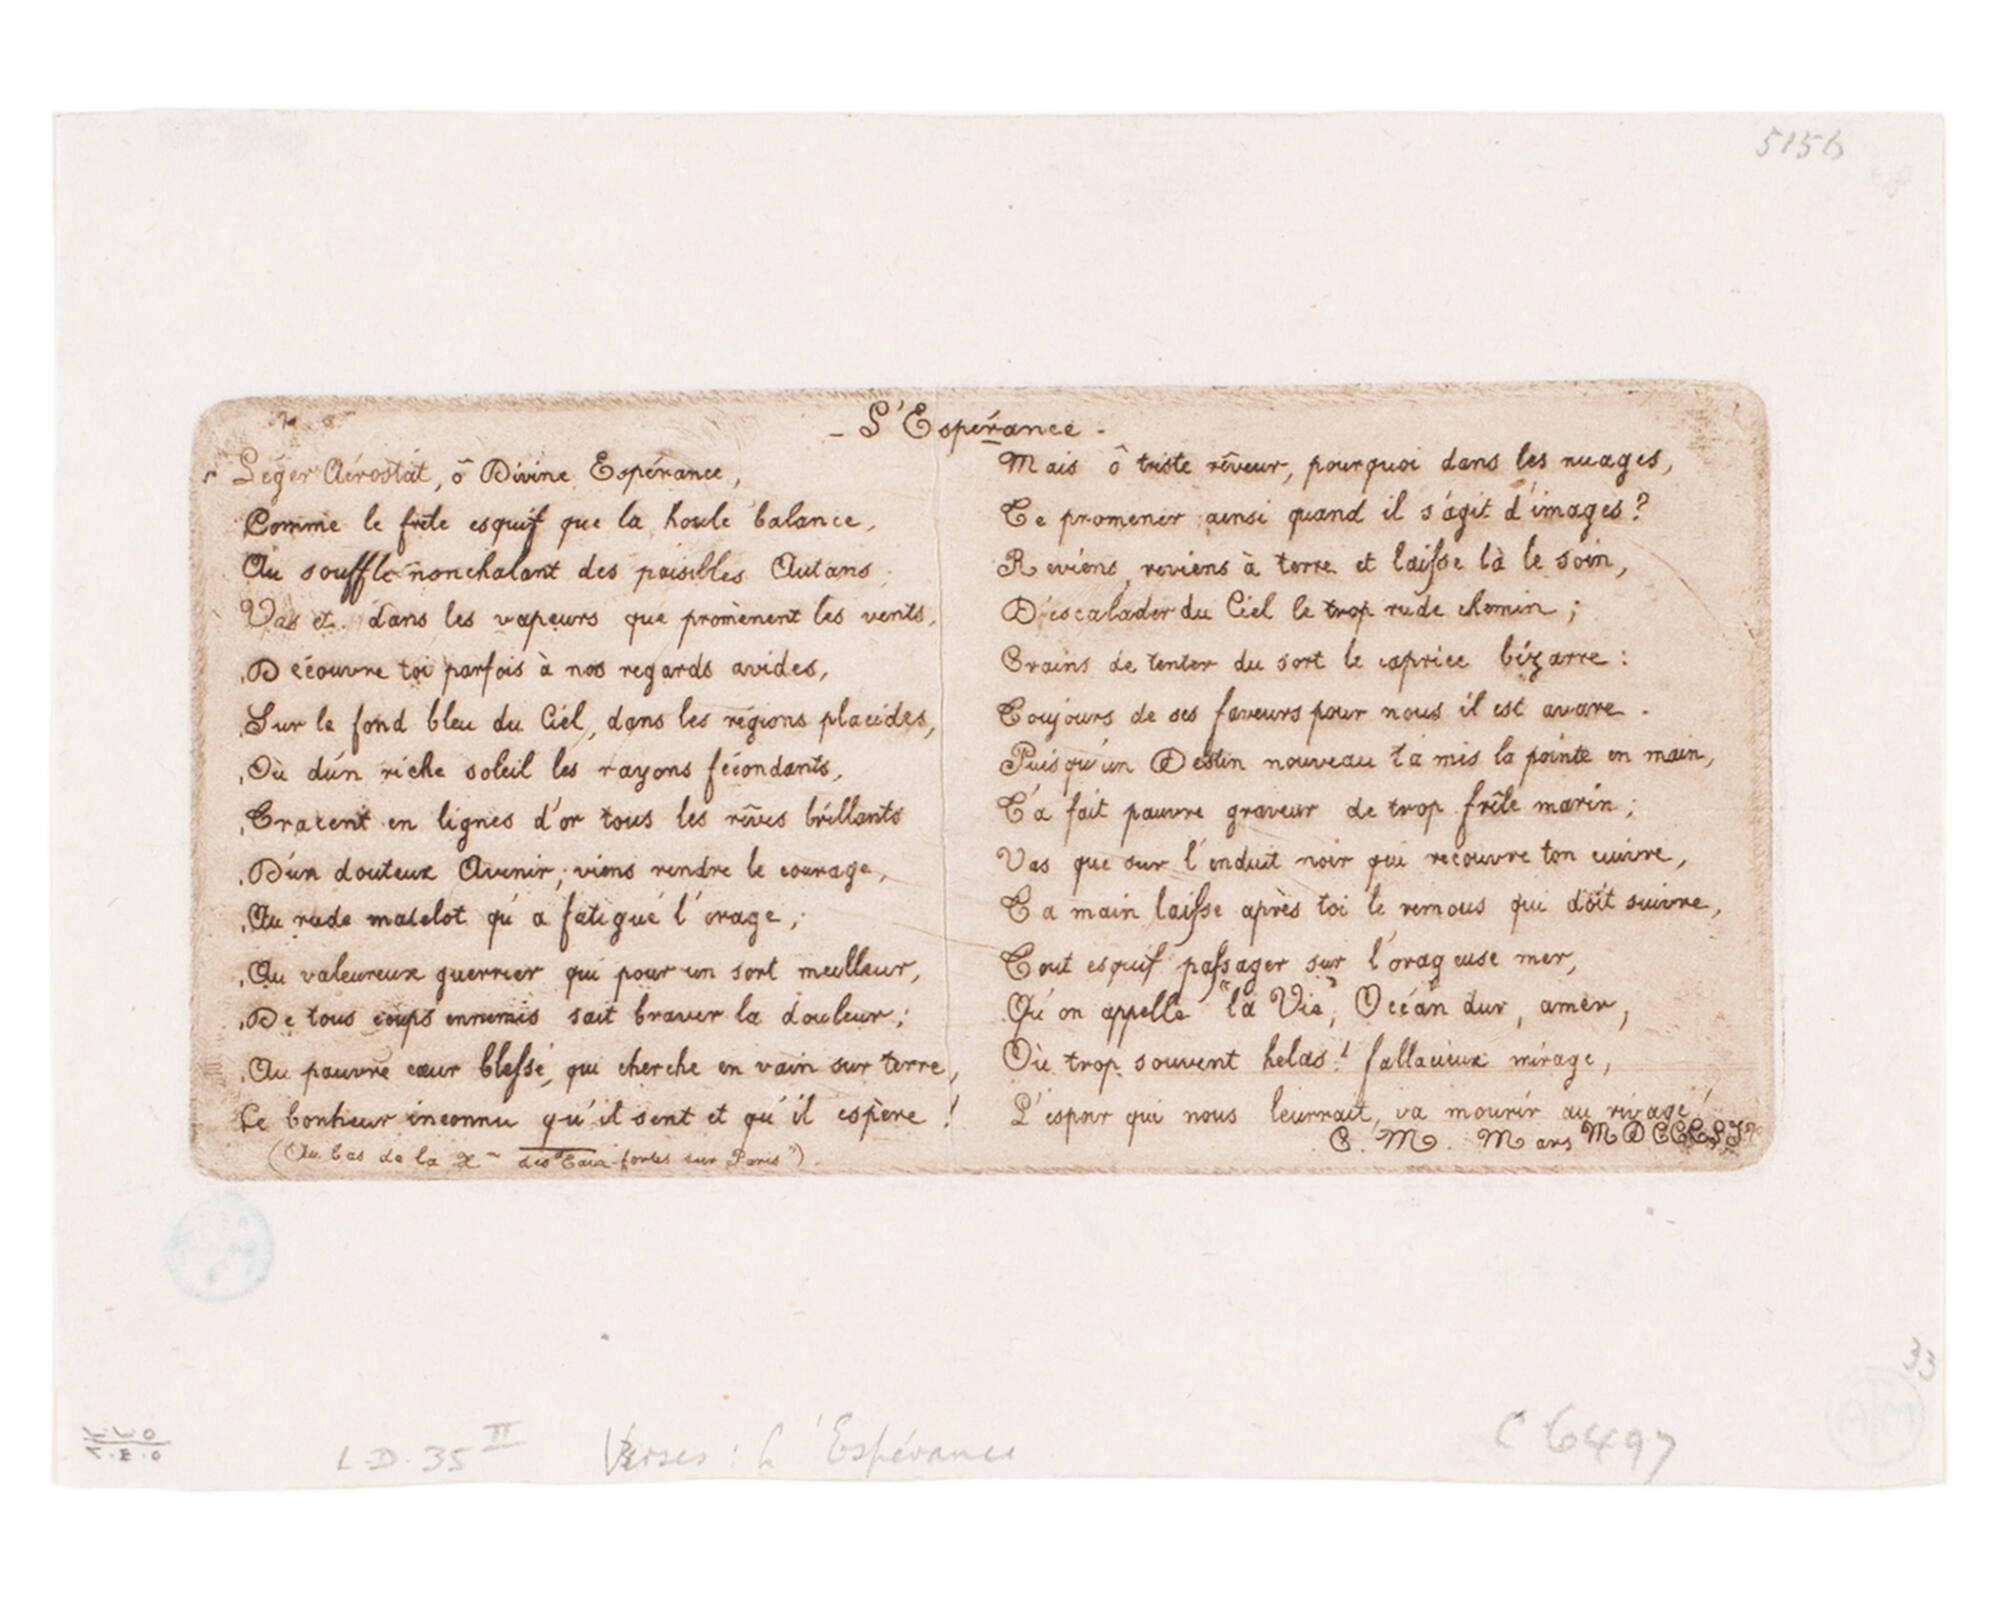 5156
- L'Espérance -
Léger Aérostat, ô Divine Espérance,
Comme le frêle esquif que la houle balance,
Au souffle nonchalant des paisibles Autans,
Vas et dans les vapeurs que promènent les vents,
Découvre toi parfois à nos regards avides,
Sur le fond bleu du Ciel, dans les régions placides,
Où d'un riche soleil les rayons fécondants,
Tracent en lignes d'or tous les rêves brillants
D'un douteux Avenir; viens rendre le courage,
Au rude matelot qu'a fatigué l'orage;
Au valeureux guerrier qui pour un sort meilleur,
De tous coups ennemis sait braver la douleur;
Au pauvre cœur blessé, qui cherche en vain sur terre,
Le bonheur inconnu qu'il sent et qu'il espère!
(Au bas de la des "Eaux-fortes sur Paris").
Mais ô triste rêveur, pourquoi dans les nuages,
Te promener ainsi quand il s'agit d'images?
Reviens, reviens à terre et laisse là le soin,
D'escalader du Ciel le trop rude chemin;
Crains de tenter du sort le caprice bizarre:
Toujours de ses faveurs pour nous il est avare.
Puisqu'un Destin nouveau t'a mis la pointe en main,
T'a fait pauvre graveur de trop frêle marin;
Vas que sur l'enduit noir qui recouvre ton cuivre,
Ta main laisse après toi le remous qui doit suivre,
Tout esquif passager sur l'orageuse mer,
Qu'on appelle "la Vie", Océan dur, amer,
Où trop souvent helas! fallacieux mirage,
L'espoir qui nous leurrait, va mourir au rivage!
C. M. Mars
33
L.D. 35 II Verses: L'Espérance C 6497